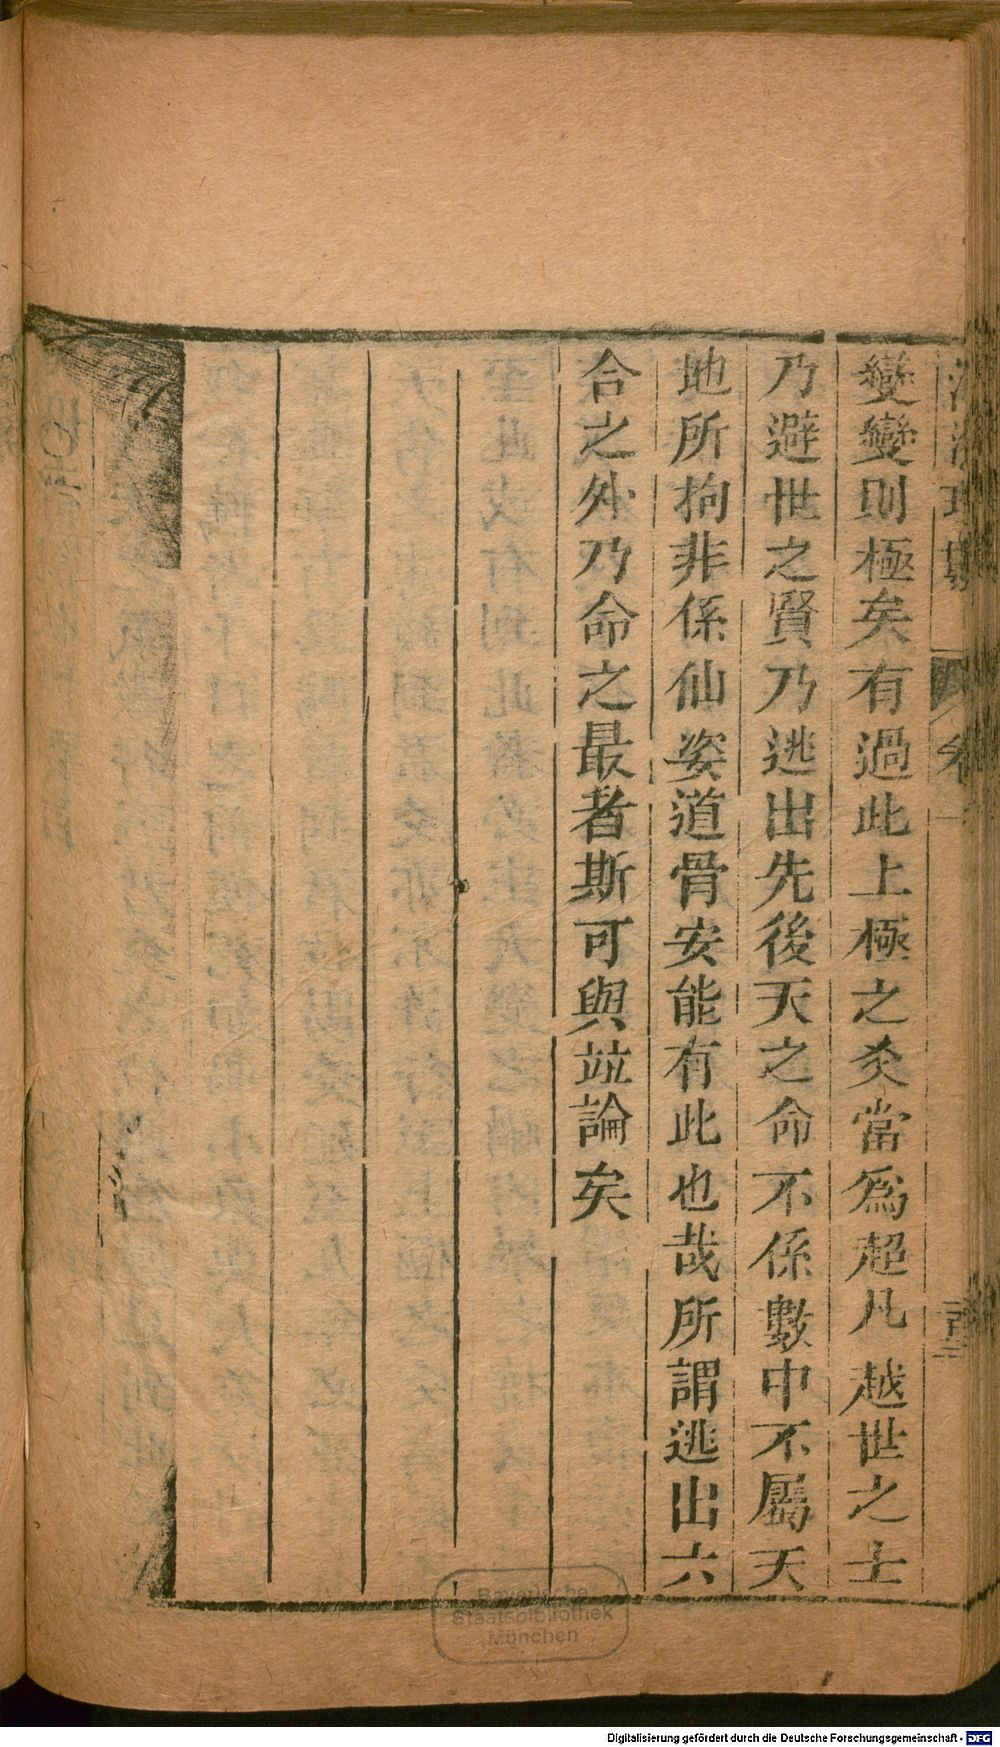 變變則極矣有過此上極之爻當爲超凡越世之士
乃避世之賢乃逃出先後天之命不係數中不屬天
地所拘非係仙姿道骨安能有此也哉所謂逃出六
合之外乃命之最者斯可與竝論矣
Bayerische
Staatsbibliothek
München
Digitalisierung gefördert durch die Deutsche Forschungsgemeinschaft - DFG